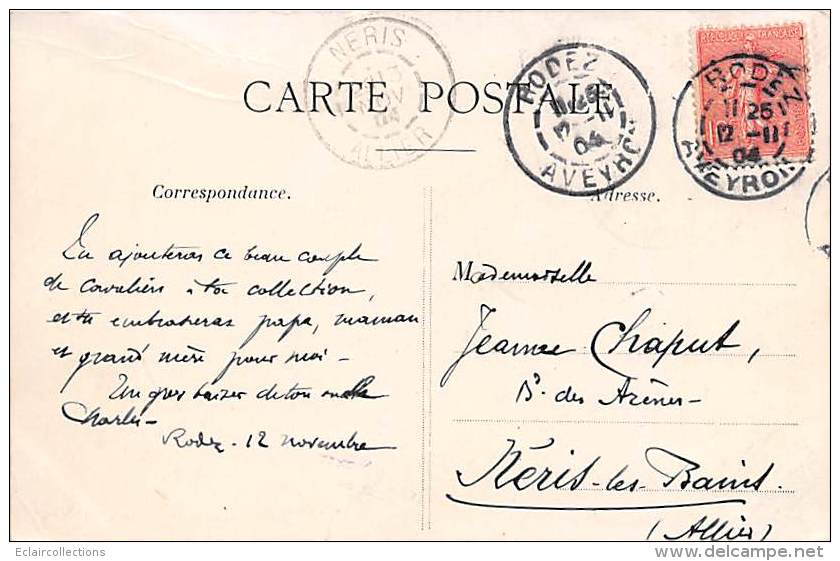 NERIS
ALLIER
04
RODEZ
AVEYRON
04
REPUBLIQUE FRANÇAISE
RODEZ
11 25
12 -11
04
AVEYRON
CARTE POSTALE
Correspondance.
Adresse.
Tu ajouteras ce beau couple
de cavaliers à ta collection,
et tu embrasseras papa, maman
et grand'mère pour moi -
Un gros baiser de ton
Charles -
Rodez - 12 novembre
Mademoiselle
M
Jeanne Chaput,
Bd. des Arènes -
Néris-les-Bains.
(Allier)
Eclaircollections
www.delcampe.net